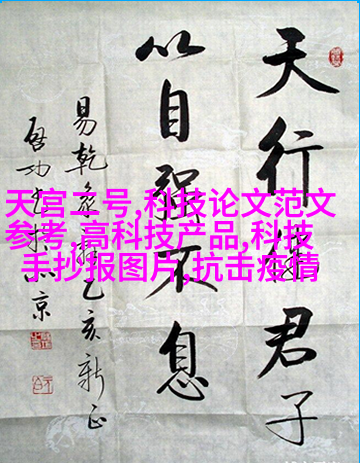 天行健君子
以自强不息
易乾乙亥新正
啟功京
天宫二号,科技论文范文
参考,高科技产品,科技
手抄报图片,抗击疫情